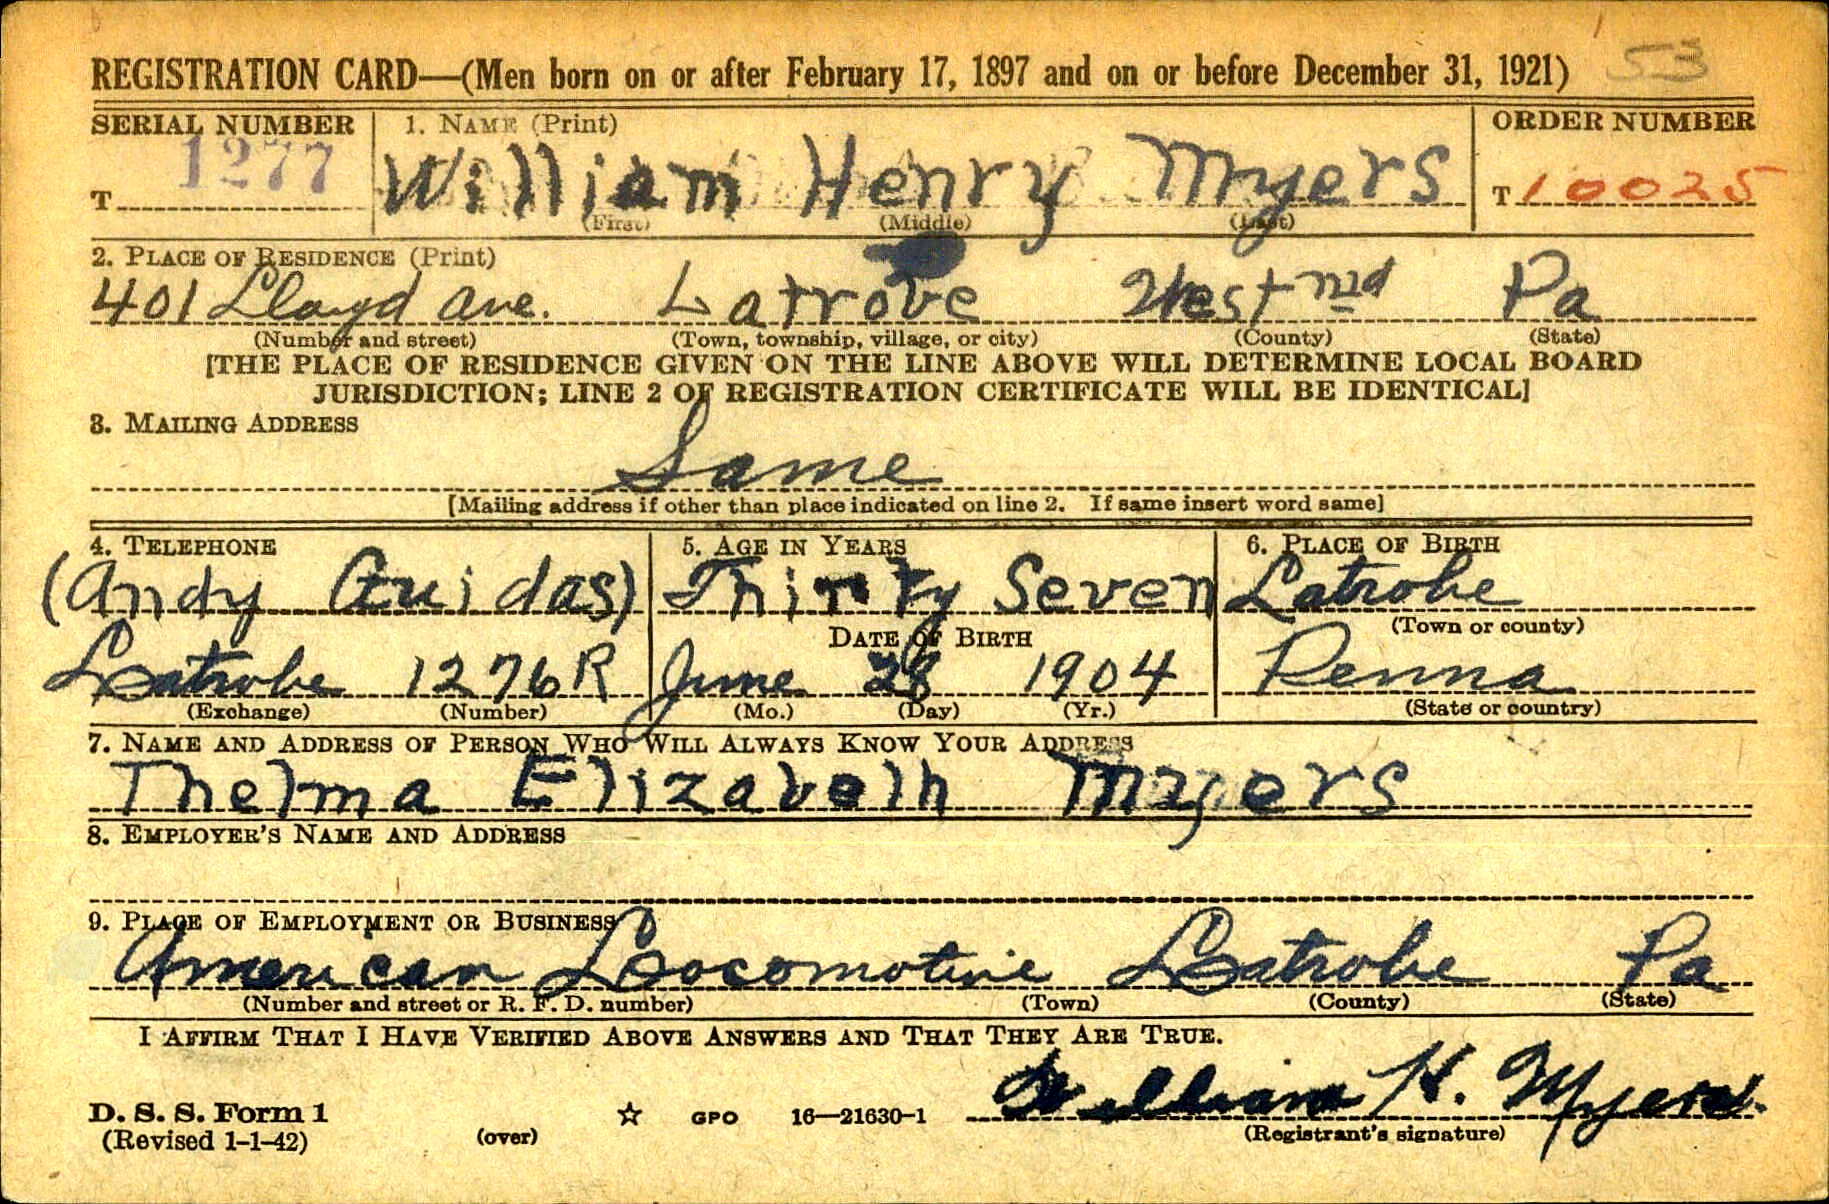 53
REGISTRATION CARD—(Men born on or after February 17, 1897 and on or before December 31, 1921)
SERIAL NUMBER 1. NAME (Print) ORDER NUMBER
T 1277 William Henry Myers T 10025
(First) (Middle) (Last)
2. PLACE OF RESIDENCE (Print)
401 Lloyd ave. Latrobe Westmd Pa
(Number and street) (Town, township, village, or city) (County) (State)
[THE PLACE OF RESIDENCE GIVEN ON THE LINE ABOVE WILL DETERMINE LOCAL BOARD
JURISDICTION; LINE 2 OF REGISTRATION CERTIFICATE WILL BE IDENTICAL]
3. MAILING ADDRESS
Same
[Mailing address if other than place indicated on line 2. If same insert word same]
4. TELEPHONE 5. AGE IN YEARS 6. PLACE OF BIRTH
(Andy Guidas) Thirty Seven Latrobe
DATE OF BIRTH (Town or county)
Latrobe 1276R June 28 1904 Penna
(Exchange) (Number) (Mo.) (Day) (Yr.) (State or country)
7. NAME AND ADDRESS OF PERSON WHO WILL ALWAYS KNOW YOUR ADDRESS
Thelma Elizabeth Myers
8. EMPLOYER'S NAME AND ADDRESS
9. PLACE OF EMPLOYMENT OR BUSINESS
American Locomotive Latrobe Pa
(Number and street or R. F. D. number) (Town) (County) (State)
I AFFIRM THAT I HAVE VERIFIED ABOVE ANSWERS AND THAT THEY ARE TRUE.
William H. Myers.
D. S. S. Form 1 ☆ GPO 16—21630-1
(Revised 1-1-42) (over) (Registrant's signature)